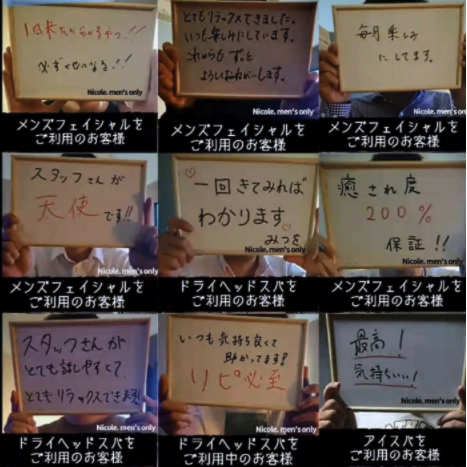 1回来たらわかるやつ!!
必ずくせになる!!
Nicole. men's only
メンズフェイシャルを
ご利用のお客様
とてもリラックスできました。
いつも楽しみにしています。
これからも ずっと
よろしくおねがいします。
Nicole. men's only
メンズフェイシャルを
ご利用のお客様
毎月楽しみ
にしてます。
Nicole. men's only
メンズフェイシャルを
ご利用のお客様
スタッフさんが
天使です!!
Nicole. men's only
メンズフェイシャルを
ご利用のお客様
一回きてみれば
わかります
みつを
Nicole. men's only
ドライヘッドスパを
ご利用のお客様
癒され度
200%
保証!!
Nicole. men's only
メンズフェイシャルを
ご利用のお客様
スタッフさんが
とても話しやすくて、
とてもリラックスできます!
Nicole. men's only
ドライヘッドスパを
ご利用のお客様
いつも気持ち良くて
助かってます!
リピ必至
Nicole. men's only
ドライヘッドスパを
ご利用中のお客様
最高!
気持ちいい!
Nicole. men's only
アイスパを
ご利用のお客様